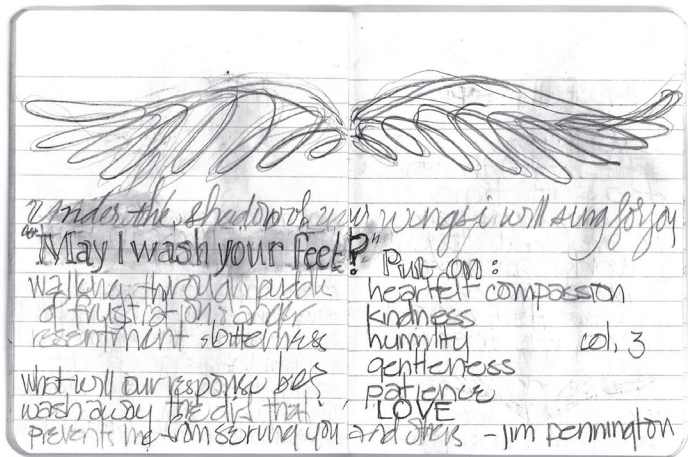 under the shadow of your wings i will sing for joy
"May I wash your feet?"
walking through puddles
of frustration, anger
resentment & bitterness
what will our response be?
wash away the dirt that
prevents me from serving you and others - jim pennington
Put on:
heartfelt compassion
kindness
humility col. 3
gentleness
patience
LOVE